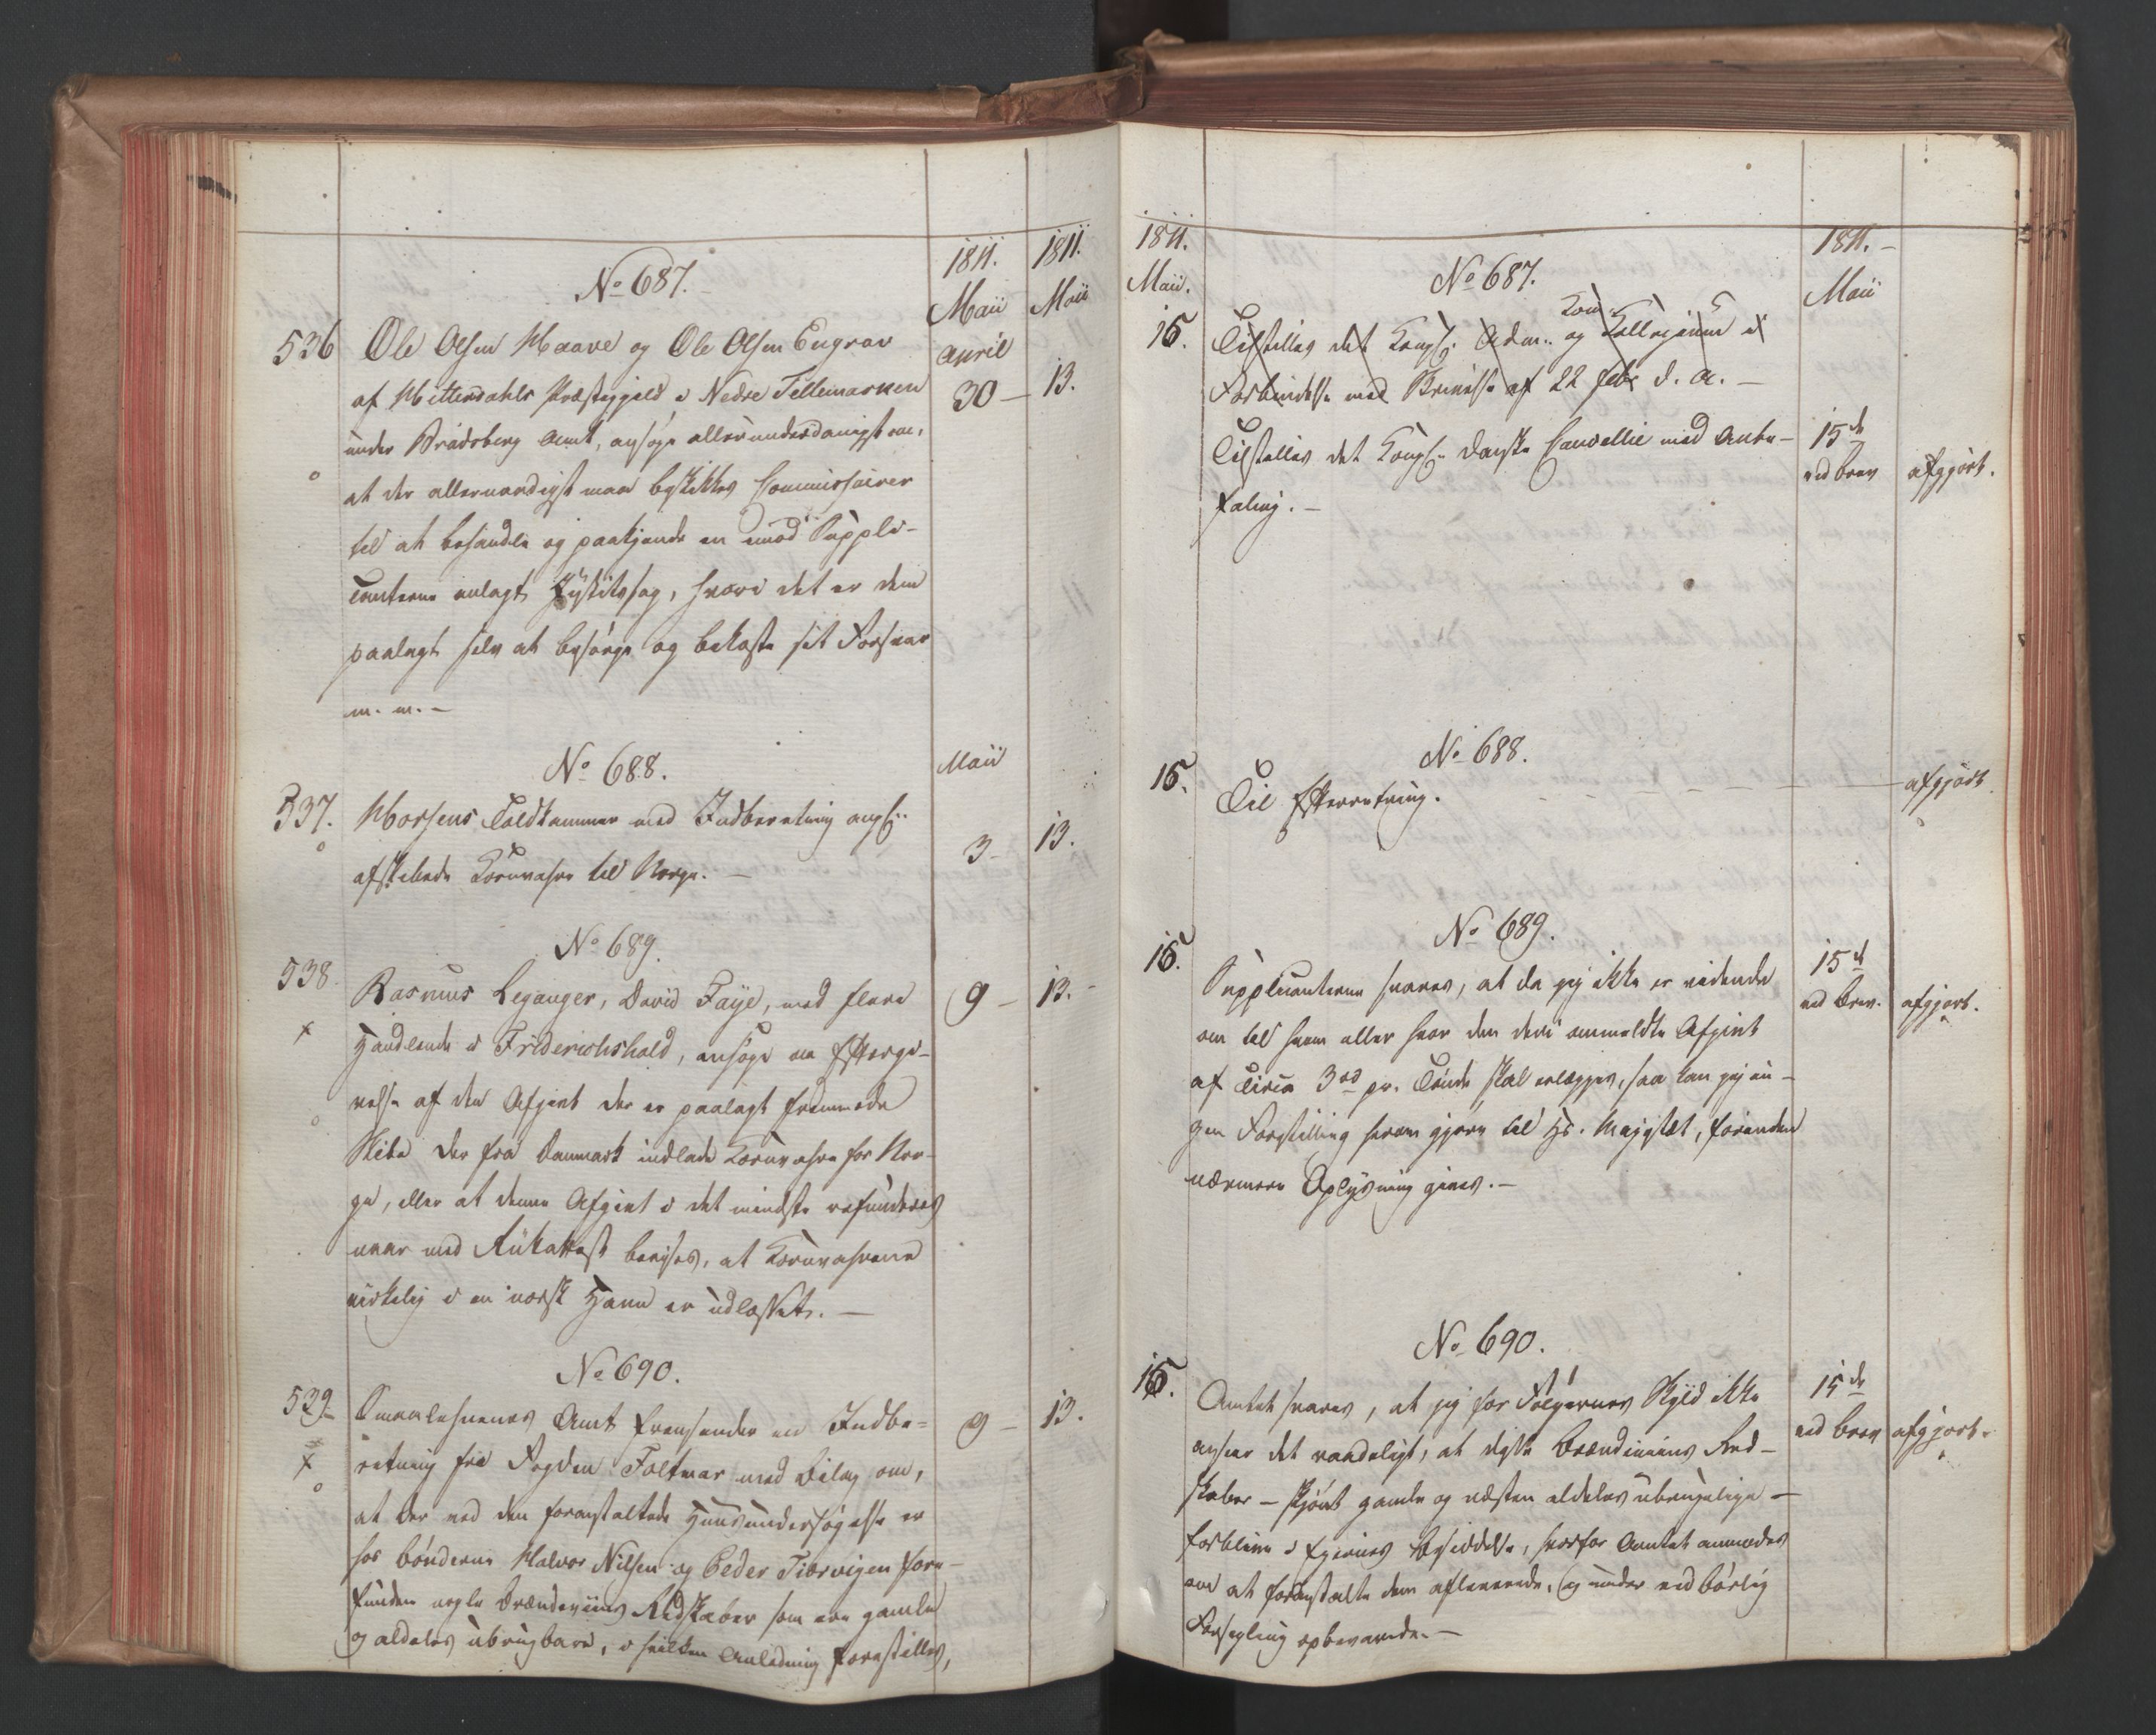 1811.
1811.
No 687.
Maii
Maii
April
536
Ole Olsen Haave og Ole Olsen Engrav
af Hitterdahls Præstegjeld i Nedre Tellemarken
30 —
13.
under Bradsberg Amt, ansøge allerunderdanigst om,
at der allernaadigst maa beskikkes Commissairer
til at behandle og paakjende en imod Suppli-
canterne anlagt Justitssag, hvori det er dem
paalagt selv at besørge og bekoste sit Forsvar
m. m. —
No 688.
Maii
537.
Horsens Toldkammer med Indberetning angl.
3 —
13.
afskibede Kornvahre til Norge. —
No 689.
538.
Rasmus Leganger, David Faÿe, med flere
9 —
13. -
Handlende i Friderichshald, ansøge om Eftergi-
velse af den Afgivt der er paalagt fremmede
Skibe der fra Danmark indlade Kornvahre for Nor-
ge, eller at denne Afgivt i det mindste refunderes
naar med Attest bevises, at Kornvahrene
virkelig i en norsk Havn er udlosset. —
No 690.
539
Smaalehnenes Amt fremsender en Indbe-
9 —
13.
retning fra Fogden Foltmar med Bilag om,
at der ved den foranstaltede Huusundersøgelse er
hos Bønderne Halvor Nilsen og Peder Tiærvigen fore-
funden nogle Brændeviins Redskaber som ere gamle
og aldeles ubrugbare, i hvilken Anledning forestilles,
1811.
1811. —
Maii.
Maii
No 687.
15.
Tilstilles det Kongl. Adm. og Kollegium i
Forbindelse med Skrivelse af 22 Febr d. A. —
Tilstilles det Kongl. danske Cancellie med Anbe-
15de
ved brev
afgjort.
faling. —
No 688.
15.
Til Efterretning.
afgjort
No 689.
15.
Supplicanterne svares, at da jeg ikke er vidende
15d
ved Brev.
afgjort.
om til hvem eller hvor den deri ommeldte Afgivt
af circa 3rd pr. Tønde skal erlægges, saa kan jeg in-
gen Forestilling herom gjøre til Hs. Majestæt, førinden
nærmere Oplysning gives. —
No 690.
15.
Amtet svares, at jeg for Følgernes Skyld ikke
15de
ved brev
afgjort.
anseer det raadeligt, at disse Brændeviins Red-
skaber — skjønt gamle og næsten aldeles ubrugelige —
forblive i Ejernes Besiddelse, hvorfor Amtet anmodes
om at foranstalte dem afleverede, og under vedbørlig
Forsegling opbevarede. —